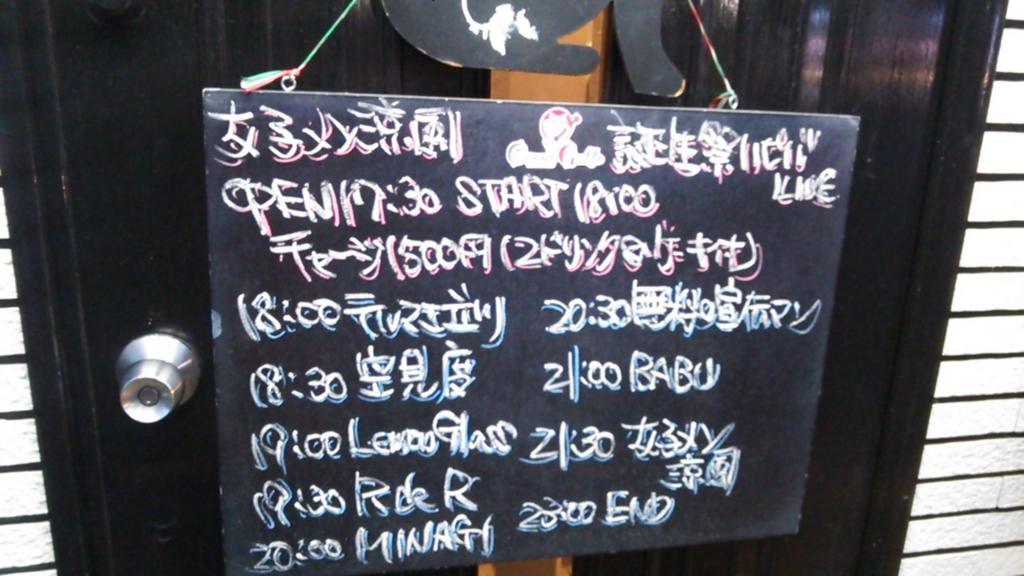 女子メン涼風 誕生祭りビバ LIVE
OPEN 17:30 START 18:00
チャージ1500円(2ドリンク ケーキ付)
18:00 テルマエ立ツ
18:30 空見度
19:00 LemonGlass
19:30 R de R
20:00 MINAGI
20:30 無料の宣伝マン
21:00 BABU
21:30 女子メン
涼風
23:00 END